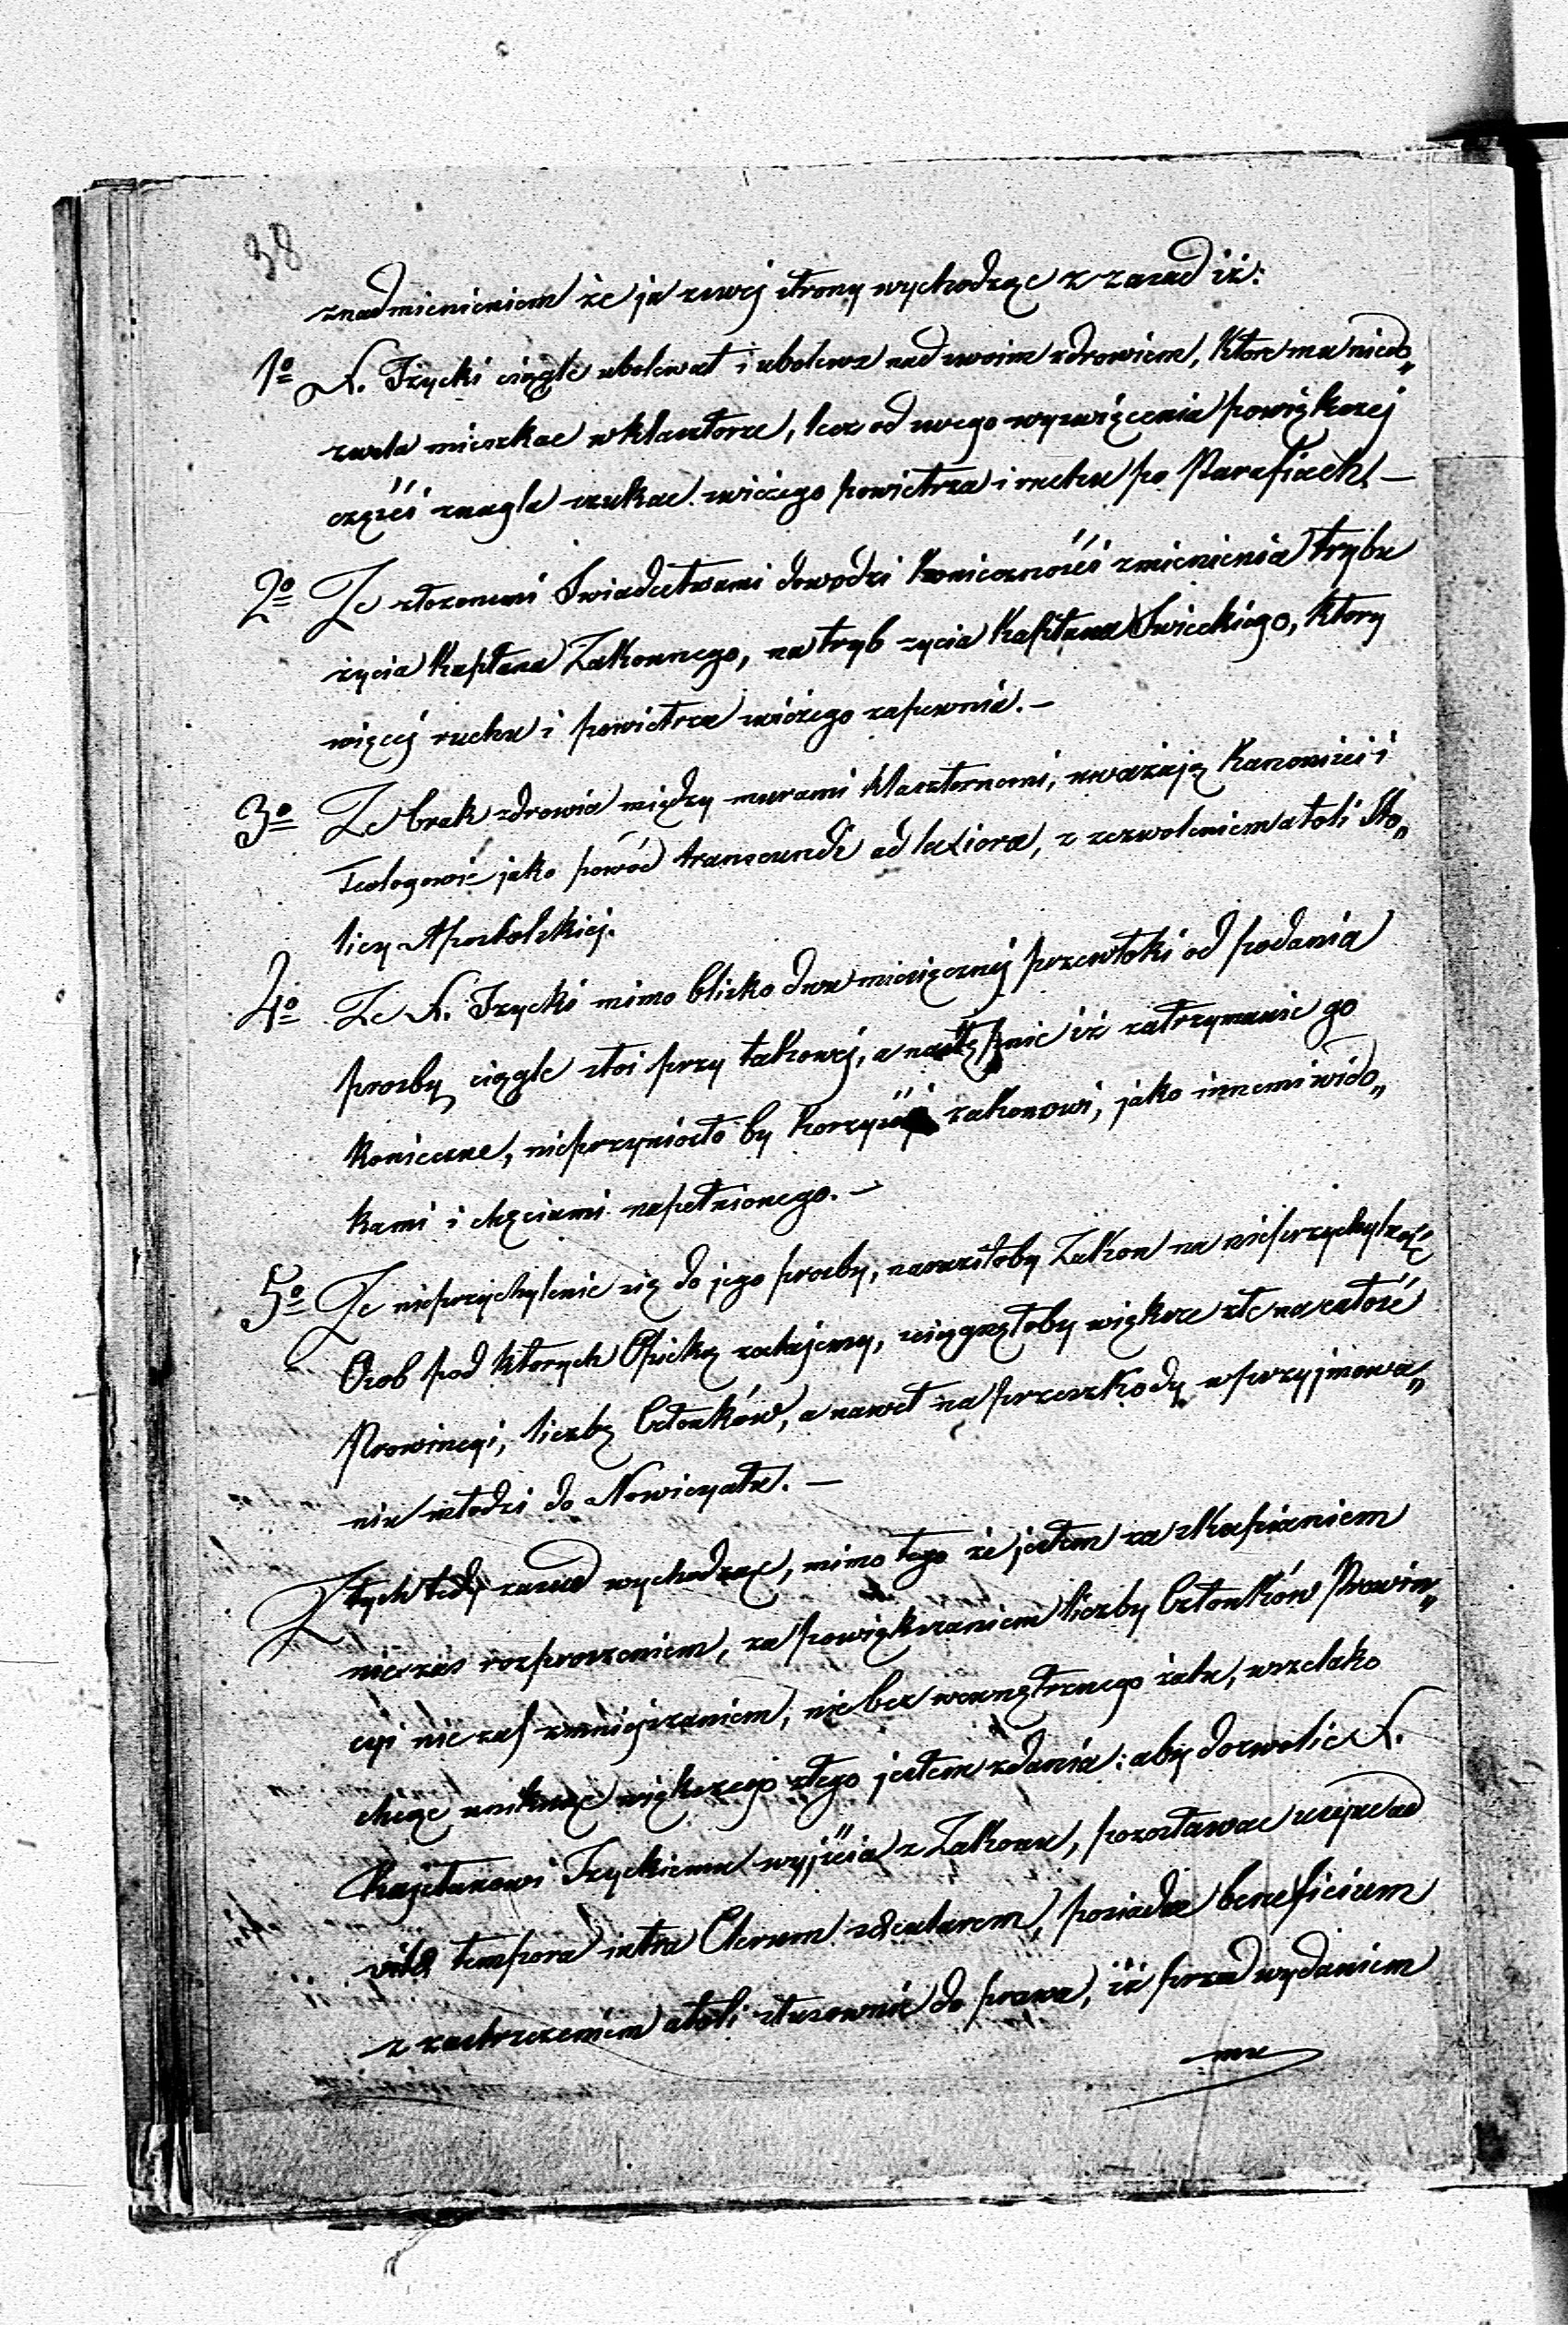 38
znadmienieniem że ja zswej strony wychodząc z zasad iż:
1º X. Izycki ciągle ubolewał i ubolewa nad swoim zdrowiem, które mu niedo„
zwala mieszkac w klasztorze, lecz od swego wyswięcenia powiększej
części znagla szukac swieżego powietrza i ruchu po Parafiach. —
2º Ze złozonemi Swiadectwami dowodzi konieczność zmienienia trybu
zycia Kapłana Zakonnego, na tryb zycia Kapłana Swieckiego, ktory
więcej ruchu i powietrza swiéżego zapewnia. —
3º Ze brak zdrowia między murami klasztornemi, uważają Kanoniści i
Teologowie jako powód transeundi ad laxiora, z zezwoleniem atoli Sto„
licy Apostolskiej.
4º Ze X. Izycki mimo blizko dwu miesięcznej przewłoki od podania
prosby ciągle stoi przy takowej, a następnie iż zatrzymanie go
konieczne, nieprzyniosło by korzyści zakonowi, jako innemi wido„
kami i chęciami napełnionego. —
5º Ze nieprzychylenie się do jego prosby, naraziłoby Zakon na nieprzychylność
Osob pod których Opieką zostajemy, sciągnęłoby większe złe na całość
Prowincyi, liczbę Członków, a nawet na przeszkody w przyjmowa„
niu młodzi do Nowicyatu. —
Z tych tedy zasad wychodząc, mimo tego że jestem za skupianiem
nie zas rozproszeniem, za powiększaniem liczby Członków Prowin„
cyi nie zaś zmniejszaniem, nie bez wewnętrznego żalu, wszelako
chcąc uniknąc większego złego jestem zdania: aby dozwolic X.
Kajetanowi Izyckiemu wyjścia z Zakonu, pozostawac usque ad
vitæ tempora intra Clerum sæcularem, posiadac beneficium
z zastrzezeniem atoli stosownie do prawa, iż przed wydaniem
mu